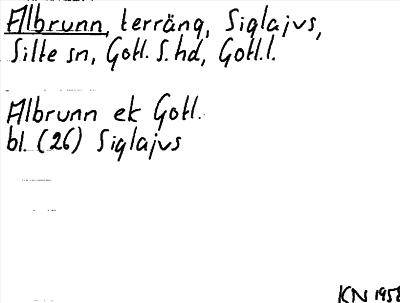 Albrunn, terräng, Siglajvs,
Silte sn, Gotl. S. hd, Gotl. l.
Albrunn ek Gotl.
bl. (26) Siglajvs
KN 1958